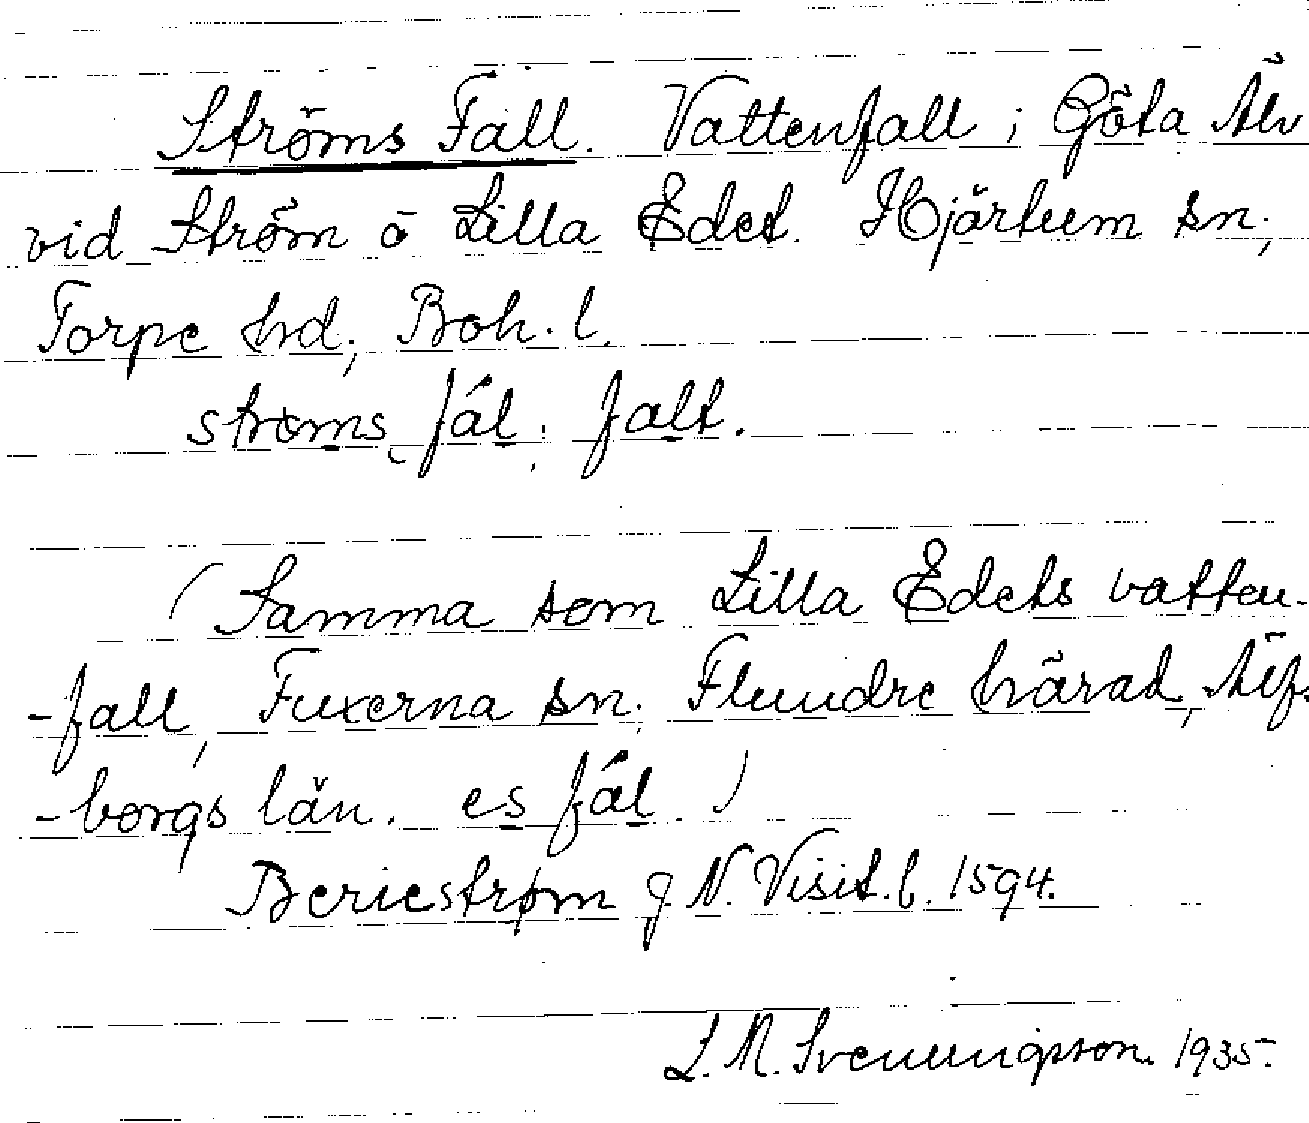 Ströms Fall. Vattenfall i Göta Älv
vid Ström o Lilla Edet. Hjärtum sn,
Torpe hrd, Boh. l.
stroms fál; falt.
(Samma som Lilla Edets vatten-
-fall, Fuxerna sn. Flundre härad, Älfs
-borgs län. es fál.)
Beriestrøm J N. Visit. b. 1594.
L. M. Svenungsson. 1935.